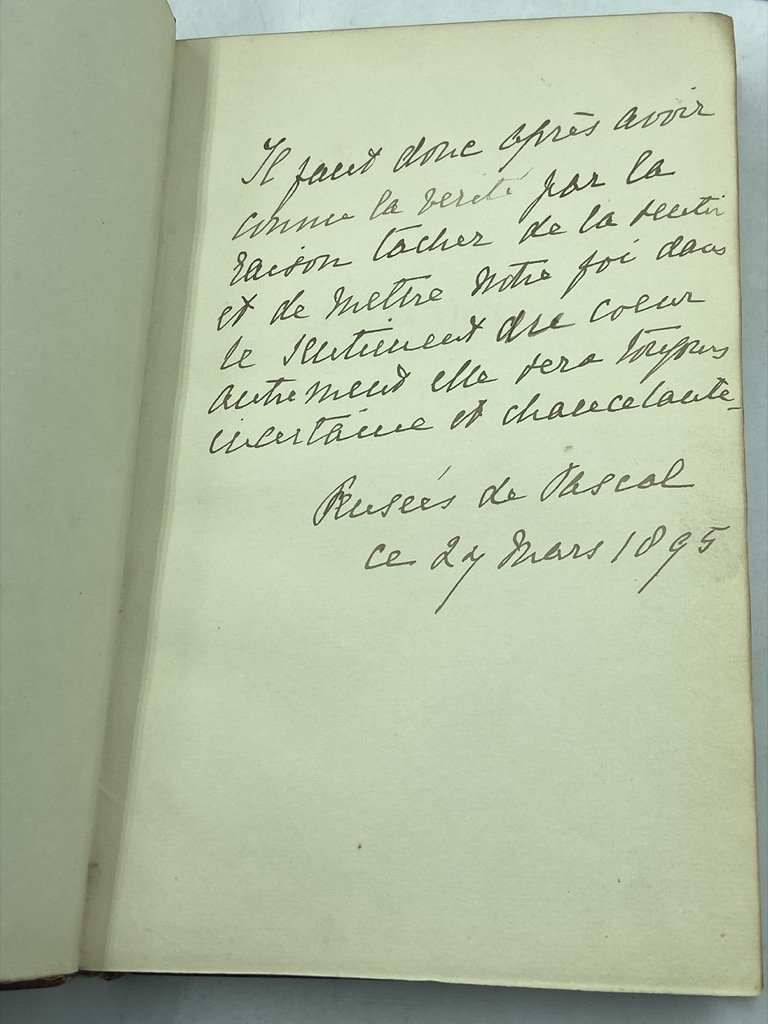 Il faut donc après avoir
connu la verité par la
raison tacher de la sentir
et de mettre notre foi dans
le sentiment du coeur
autrement elle sera toujours
incertaine et chancelante_
Pensées de Pascal
ce 27 Mars 1895